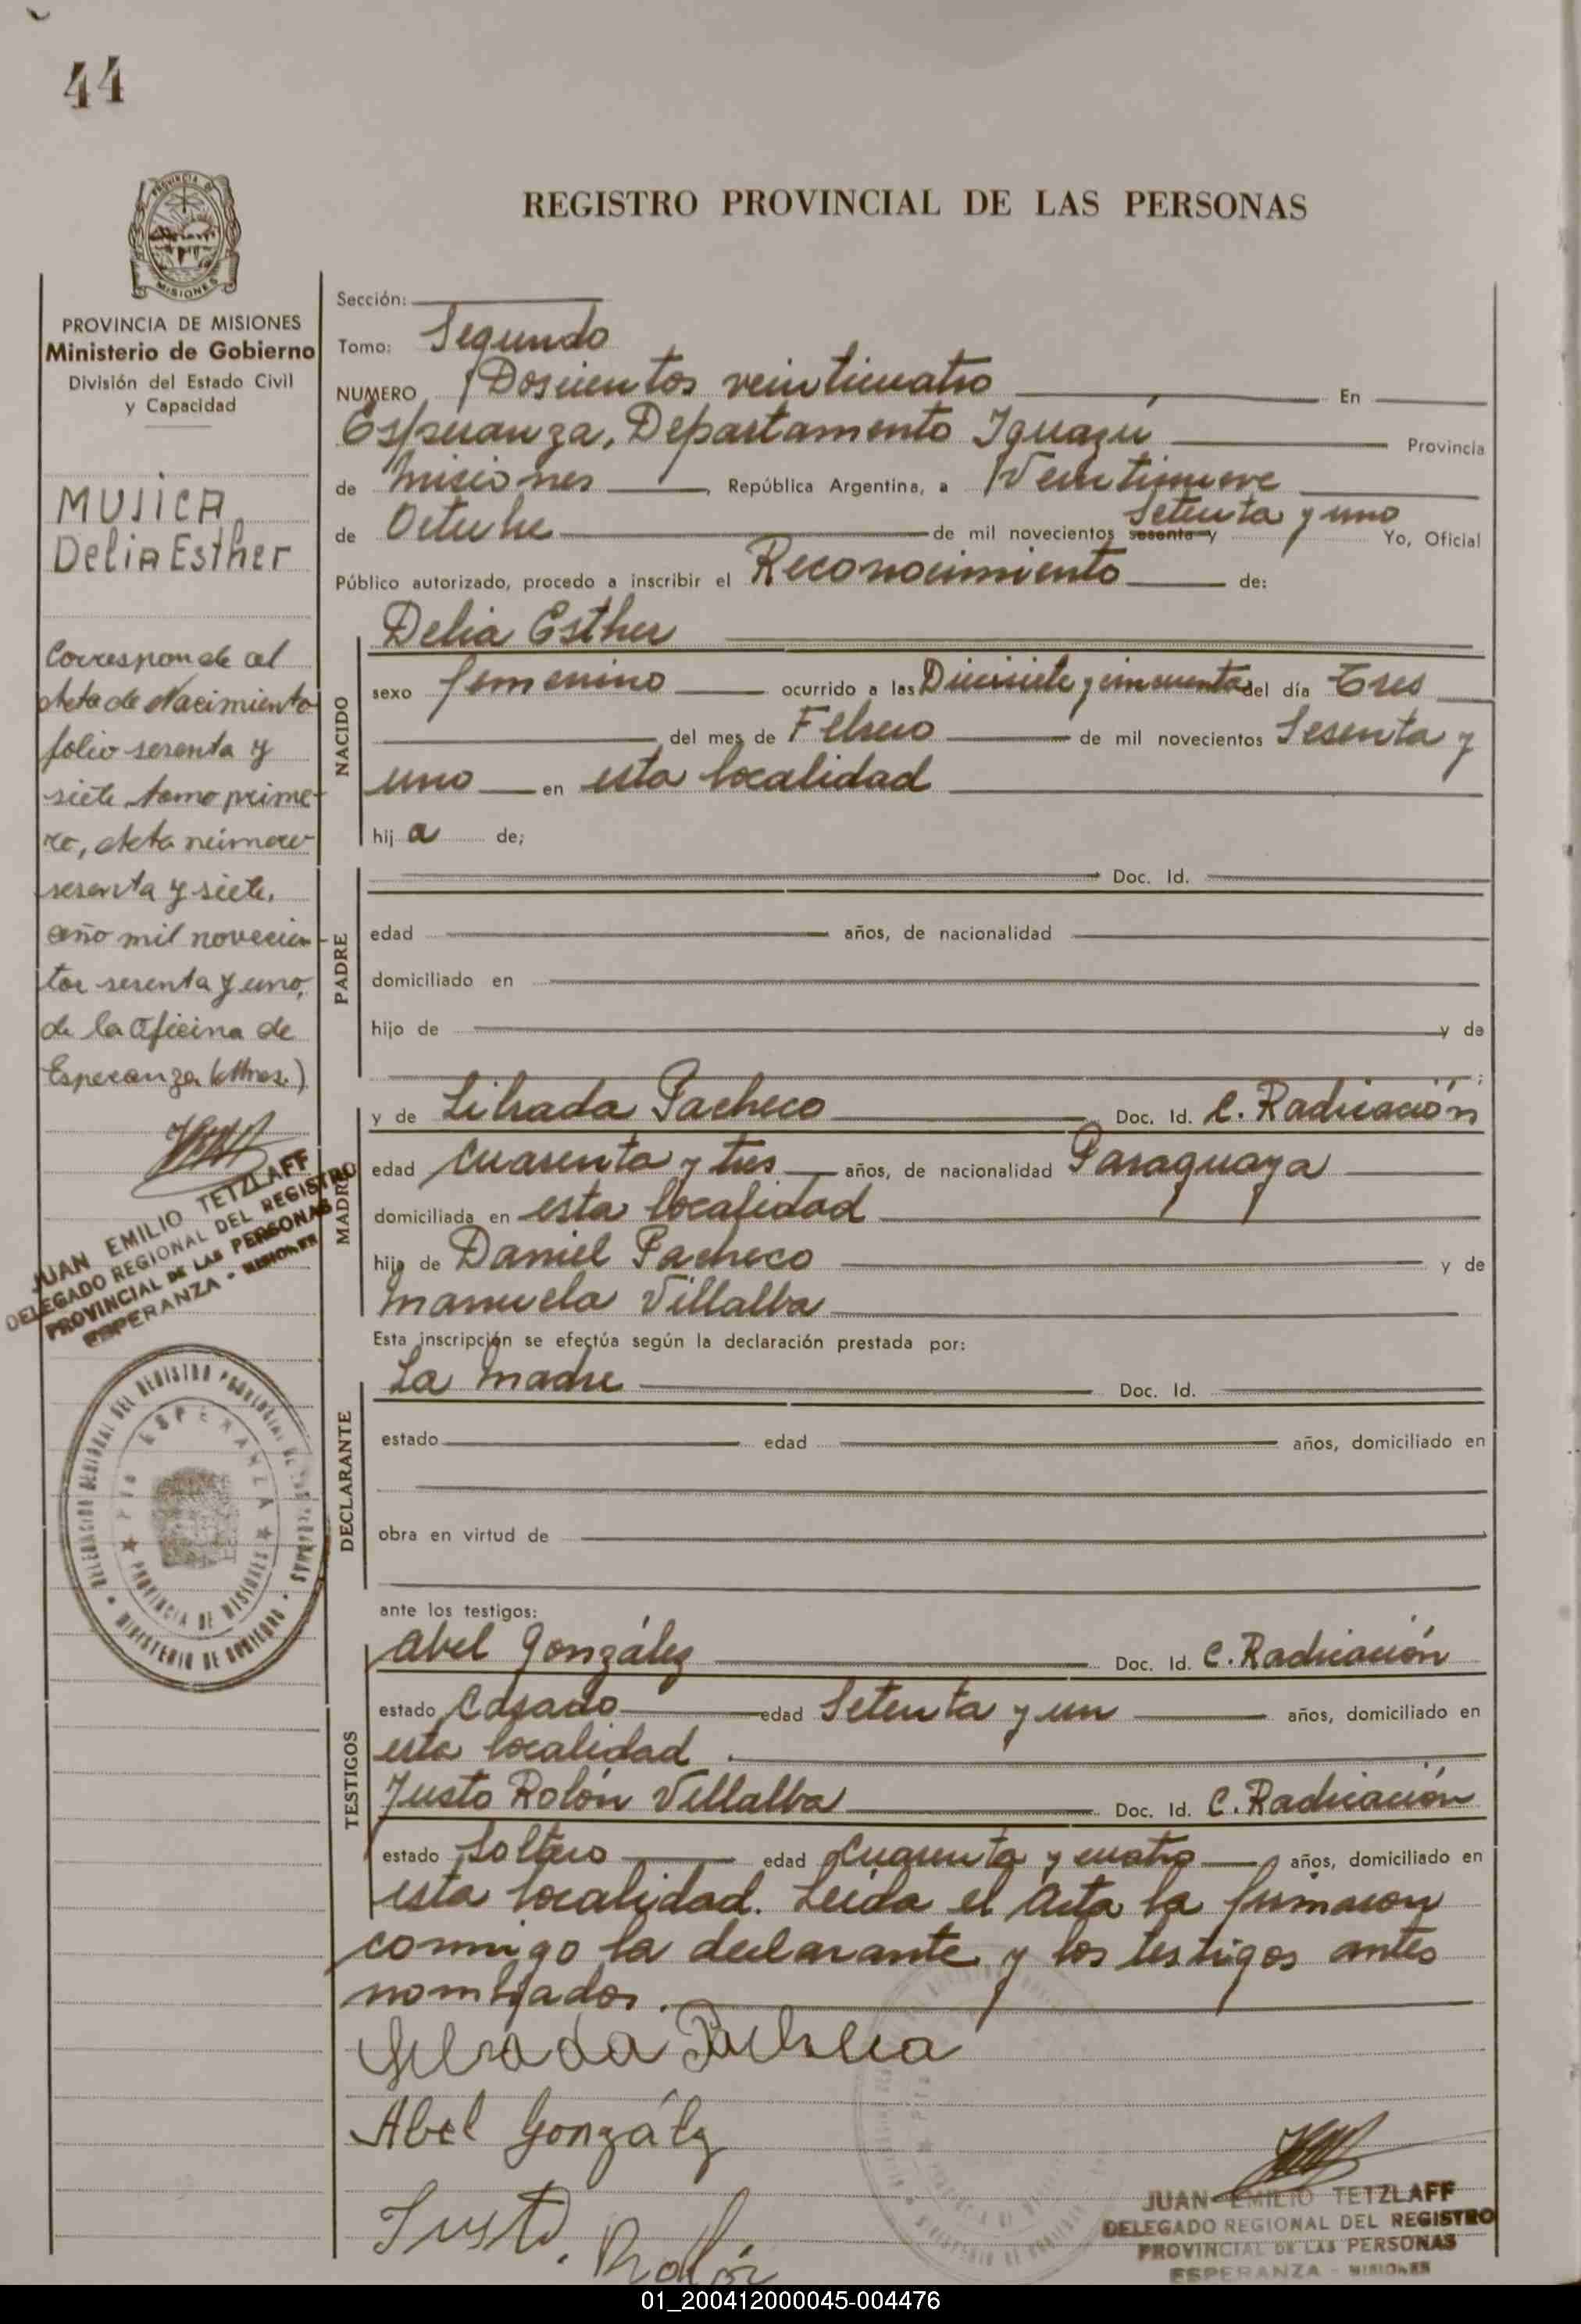 44
PROVINCIA DE
MISIONES
REGISTRO PROVINCIAL DE LAS PERSONAS
PROVINCIA DE MISIONES
Ministerio de Gobierno
División del Estado Civil
y Capacidad
MUJICA
Delia Esther
Corresponde al
Acta de Nacimiento
folio sesenta y
siete, tomo prime-
ro, Acta número
sesenta y siete,
año mil novecien-
tos sesenta y uno,
de la Oficina de
Esperanza (Mnes.)
JUAN EMILIO TETZLAFF
DELEGADO REGIONAL DEL REGISTRO
PROVINCIAL DE LAS PERSONAS
ESPERANZA - MISIONES
DELEGACION REGIONAL DEL REGISTRO PROVINCIAL DE LAS PERSONAS
ESPERANZA
PROVINCIA DE MISIONES
MINISTERIO DE GOBIERNO
Sección:
Tomo: Segundo
NUMERO Doscientos veinticuatro En
Esperanza, Departamento Iguazú Provincia
de Misiones, República Argentina, a Veintinueve
de Octubre de mil novecientos sesenta y Setenta y uno Yo, Oficial
Público autorizado, procedo a inscribir el Reconocimiento de:
NACIDO
Delia Esther
sexo femenino ocurrido a las Diecisiete y cincuenta del día Tres
del mes de Febrero de mil novecientos Sesenta y
uno en esta localidad
hij a de;
PADRE
Doc. Id.
edad años, de nacionalidad
domiciliado en
hijo de y de
;
MADRE
y de Librada Pacheco Doc. Id. C. Radicación
edad Cuarenta y tres años, de nacionalidad Paraguaya
domiciliada en esta localidad
hija de Daniel Pacheco y de
Manuela Villalba
Esta inscripción se efectúa según la declaración prestada por:
DECLARANTE
La Madre Doc. Id.
estado edad años, domiciliado en
obra en virtud de
ante los testigos:
TESTIGOS
Abel González Doc. Id. C. Radicación
estado Casado edad Setenta y un años, domiciliado en
esta localidad
Justo Rolón Villalba Doc. Id. C. Radicación
estado Soltero edad Cuarenta y cuatro años, domiciliado en
esta localidad. Leída el Acta la firmaron
conmigo la declarante y los testigos antes
nombrados.
Abel González
Justo Rolón
JUAN EMILIO TETZLAFF
DELEGADO REGIONAL DEL REGISTRO
PROVINCIAL DE LAS PERSONAS
ESPERANZA - MISIONES
01_200412000045-004476